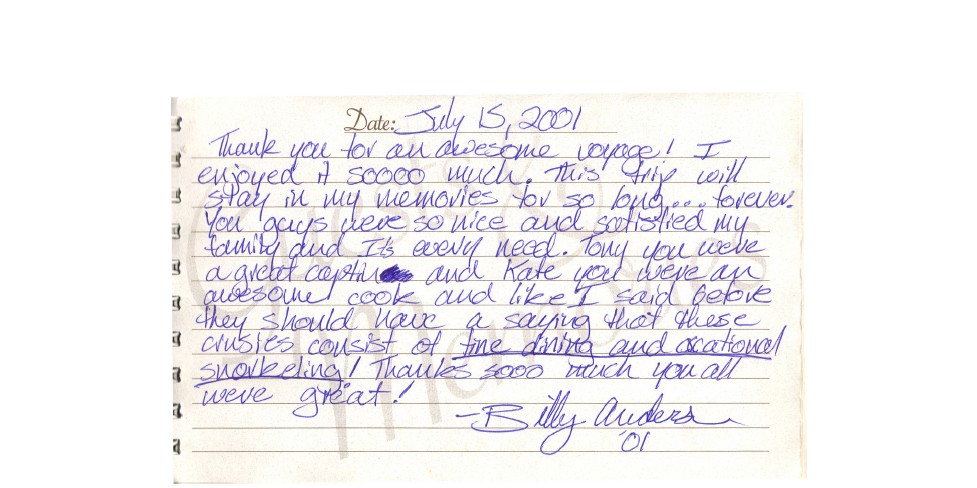 Date: July 15, 2001
Thank you for an awesome voyage! I
enjoyed it soooo much. This trip will
stay in my memories for so long... forever.
You guys were so nice and satisfied my
family and I's every need. Tony you were
a great captin and Kate you were an
awesome cook and like I said before
they should have a saying that these
crusies consist of fine dining and occational
snorkeling! Thanks sooo much you all
were great!
-Billy Anders
'01